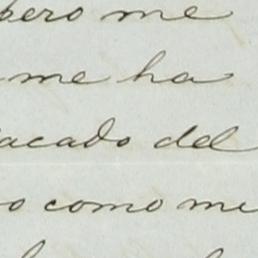 pero me
me ha
acado del
o como me